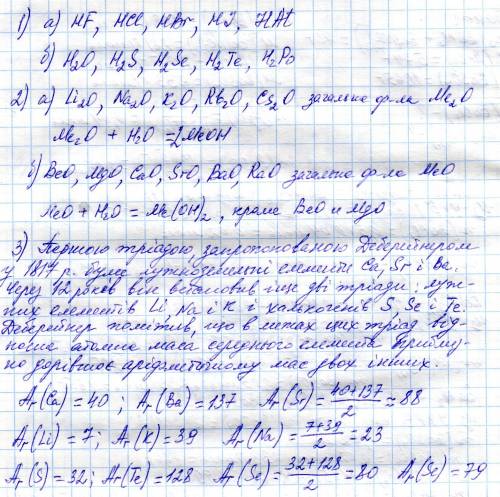 1) а) HF, HCl, HBr, HI, HAt
б) H₂O, H₂S, H₂Se, H₂Te, H₂Po
2) а) Li₂O, Na₂O, K₂O, Rb₂O, Cs₂O загальна ф-ла Me₂O
Me₂O + H₂O = 2MeOH
б) BeO, MgO, CaO, SrO, BaO, RaO загальна ф-ла MeO
MeO + H₂O = Me(OH)₂, кроме BeO и MgO
3) Першою тріадою, запропонованою Деберейнером
у 1817 р. були лужноземельні елементи Ca, Sr і Ba.
Через 12 років він встановив ще дві тріади: луж-
них елементів Li, Na і K і халькогенів S, Se і Te.
Деберейнер помітив, що в межах цих тріад від-
носна атомна маса середнього елемента приблиз-
но дорівнює арифметичному мас двох інших.
Ar(Ca) = 40 ; Ar(Ba) = 137 Ar(Sr) = (40+137)/2 ≈ 88
Ar(Li) = 7; Ar(K) = 39 Ar(Na) = (7+39)/2 = 23
Ar(S) = 32; Ar(Te) = 128 Ar(Se) = (32+128)/2 = 80 Ar(Se) = 79